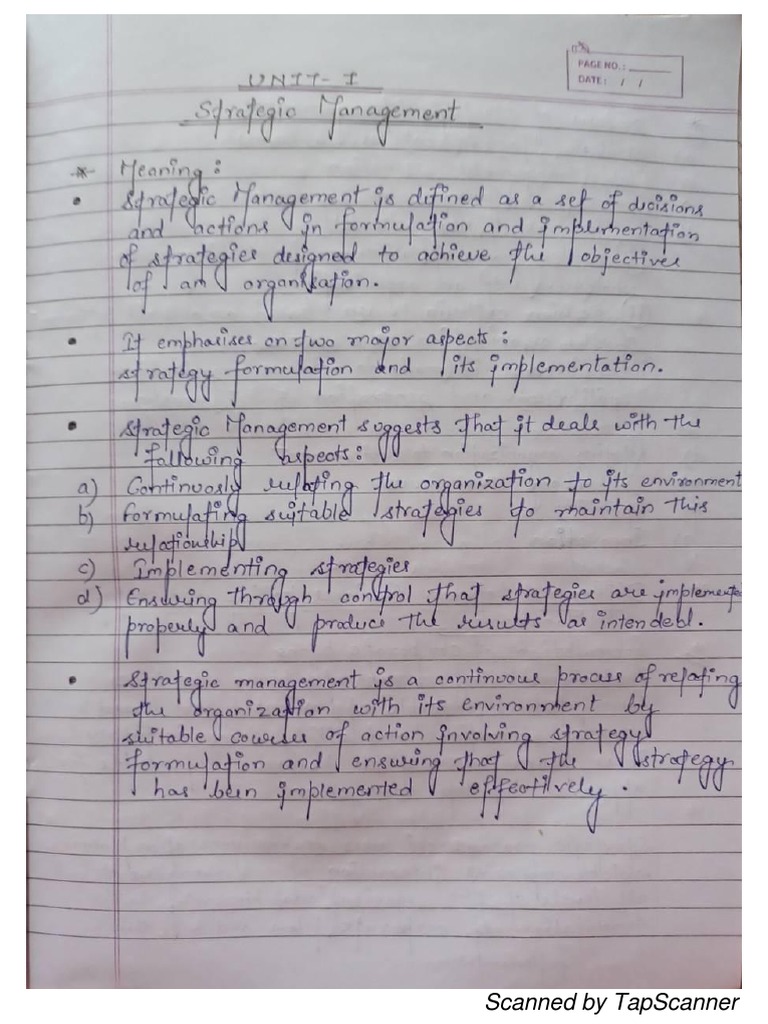 PAGE NO.:
DATE: / /
UNIT-I
Strategic Management
* Meaning:
• Strategic Management is defined as a set of decisions
and actions in formulation and implementation
of strategies designed to achieve the objectives
of an organisation.
• It emphasises on two major aspects:
strategy formulation and its implementation.
• Strategic Management suggests that it deals with the
following aspects:
a) Continuosly relating the organization to its environment
b) formulating suitable strategies to maintain this
relationship
c) Implementing strategies
d) Ensuring through control that strategies are implemente
properly and produce the results as intended.
• Strategic management is a continuous process of relating
the organization with its environment by
suitable courses of action involving strategy
formulation and ensuring that the strategy
has been implemented effectively.
Scanned by TapScanner